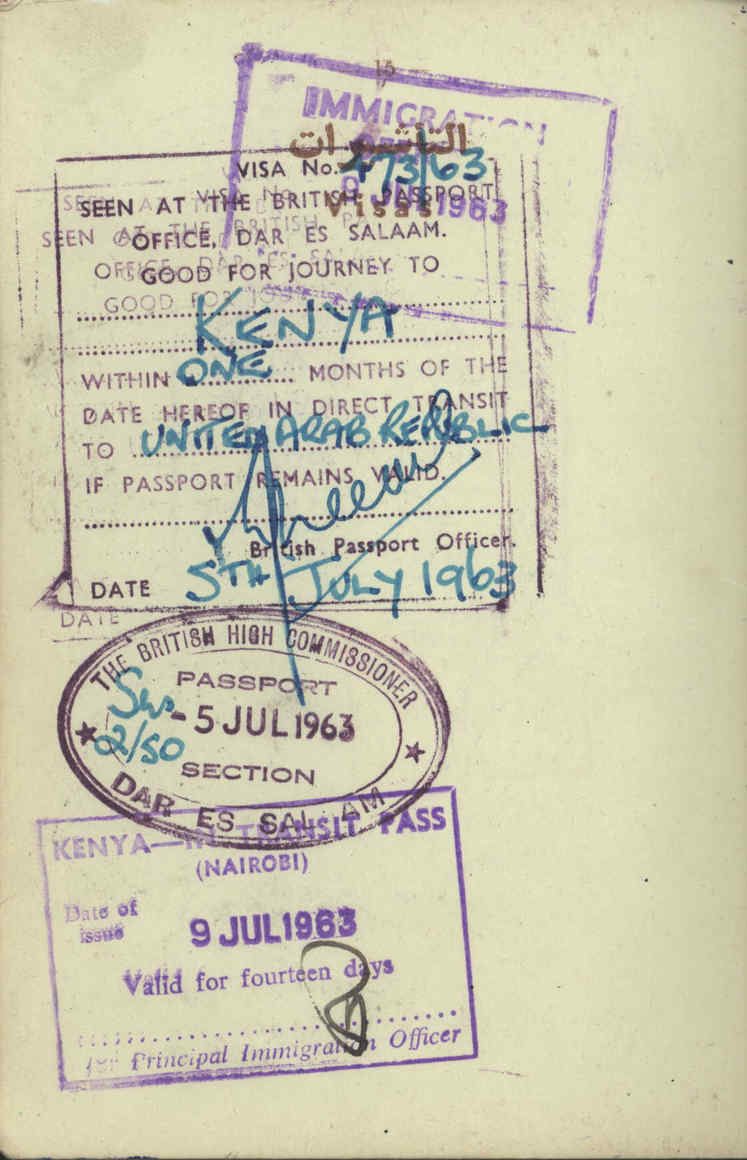 15
IMMIGRATION
التأشيرات
Visas
9 JUL 1963
VISA No. 473/63
SEEN AT THE BRITISH PASSPORT
OFFICE, DAR ES SALAAM.
GOOD FOR JOURNEY TO
KENYA
WITHIN ONE MONTHS OF THE
DATE HEREOF IN DIRECT TRANSIT
TO UNITED ARAB REPUBLIC
IF PASSPORT REMAINS VALID.
British Passport Officer.
DATE 5TH JULY 1963
DATE
THE BRITISH HIGH COMMISSIONER
PASSPORT
- 5 JUL 1963
2/50
SECTION
DAR ES SALAAM
KENYA— TRANSIT PASS
(NAIROBI)
Date of
issue
9 JUL 1963
Valid for fourteen days
for Principal Immigration Officer